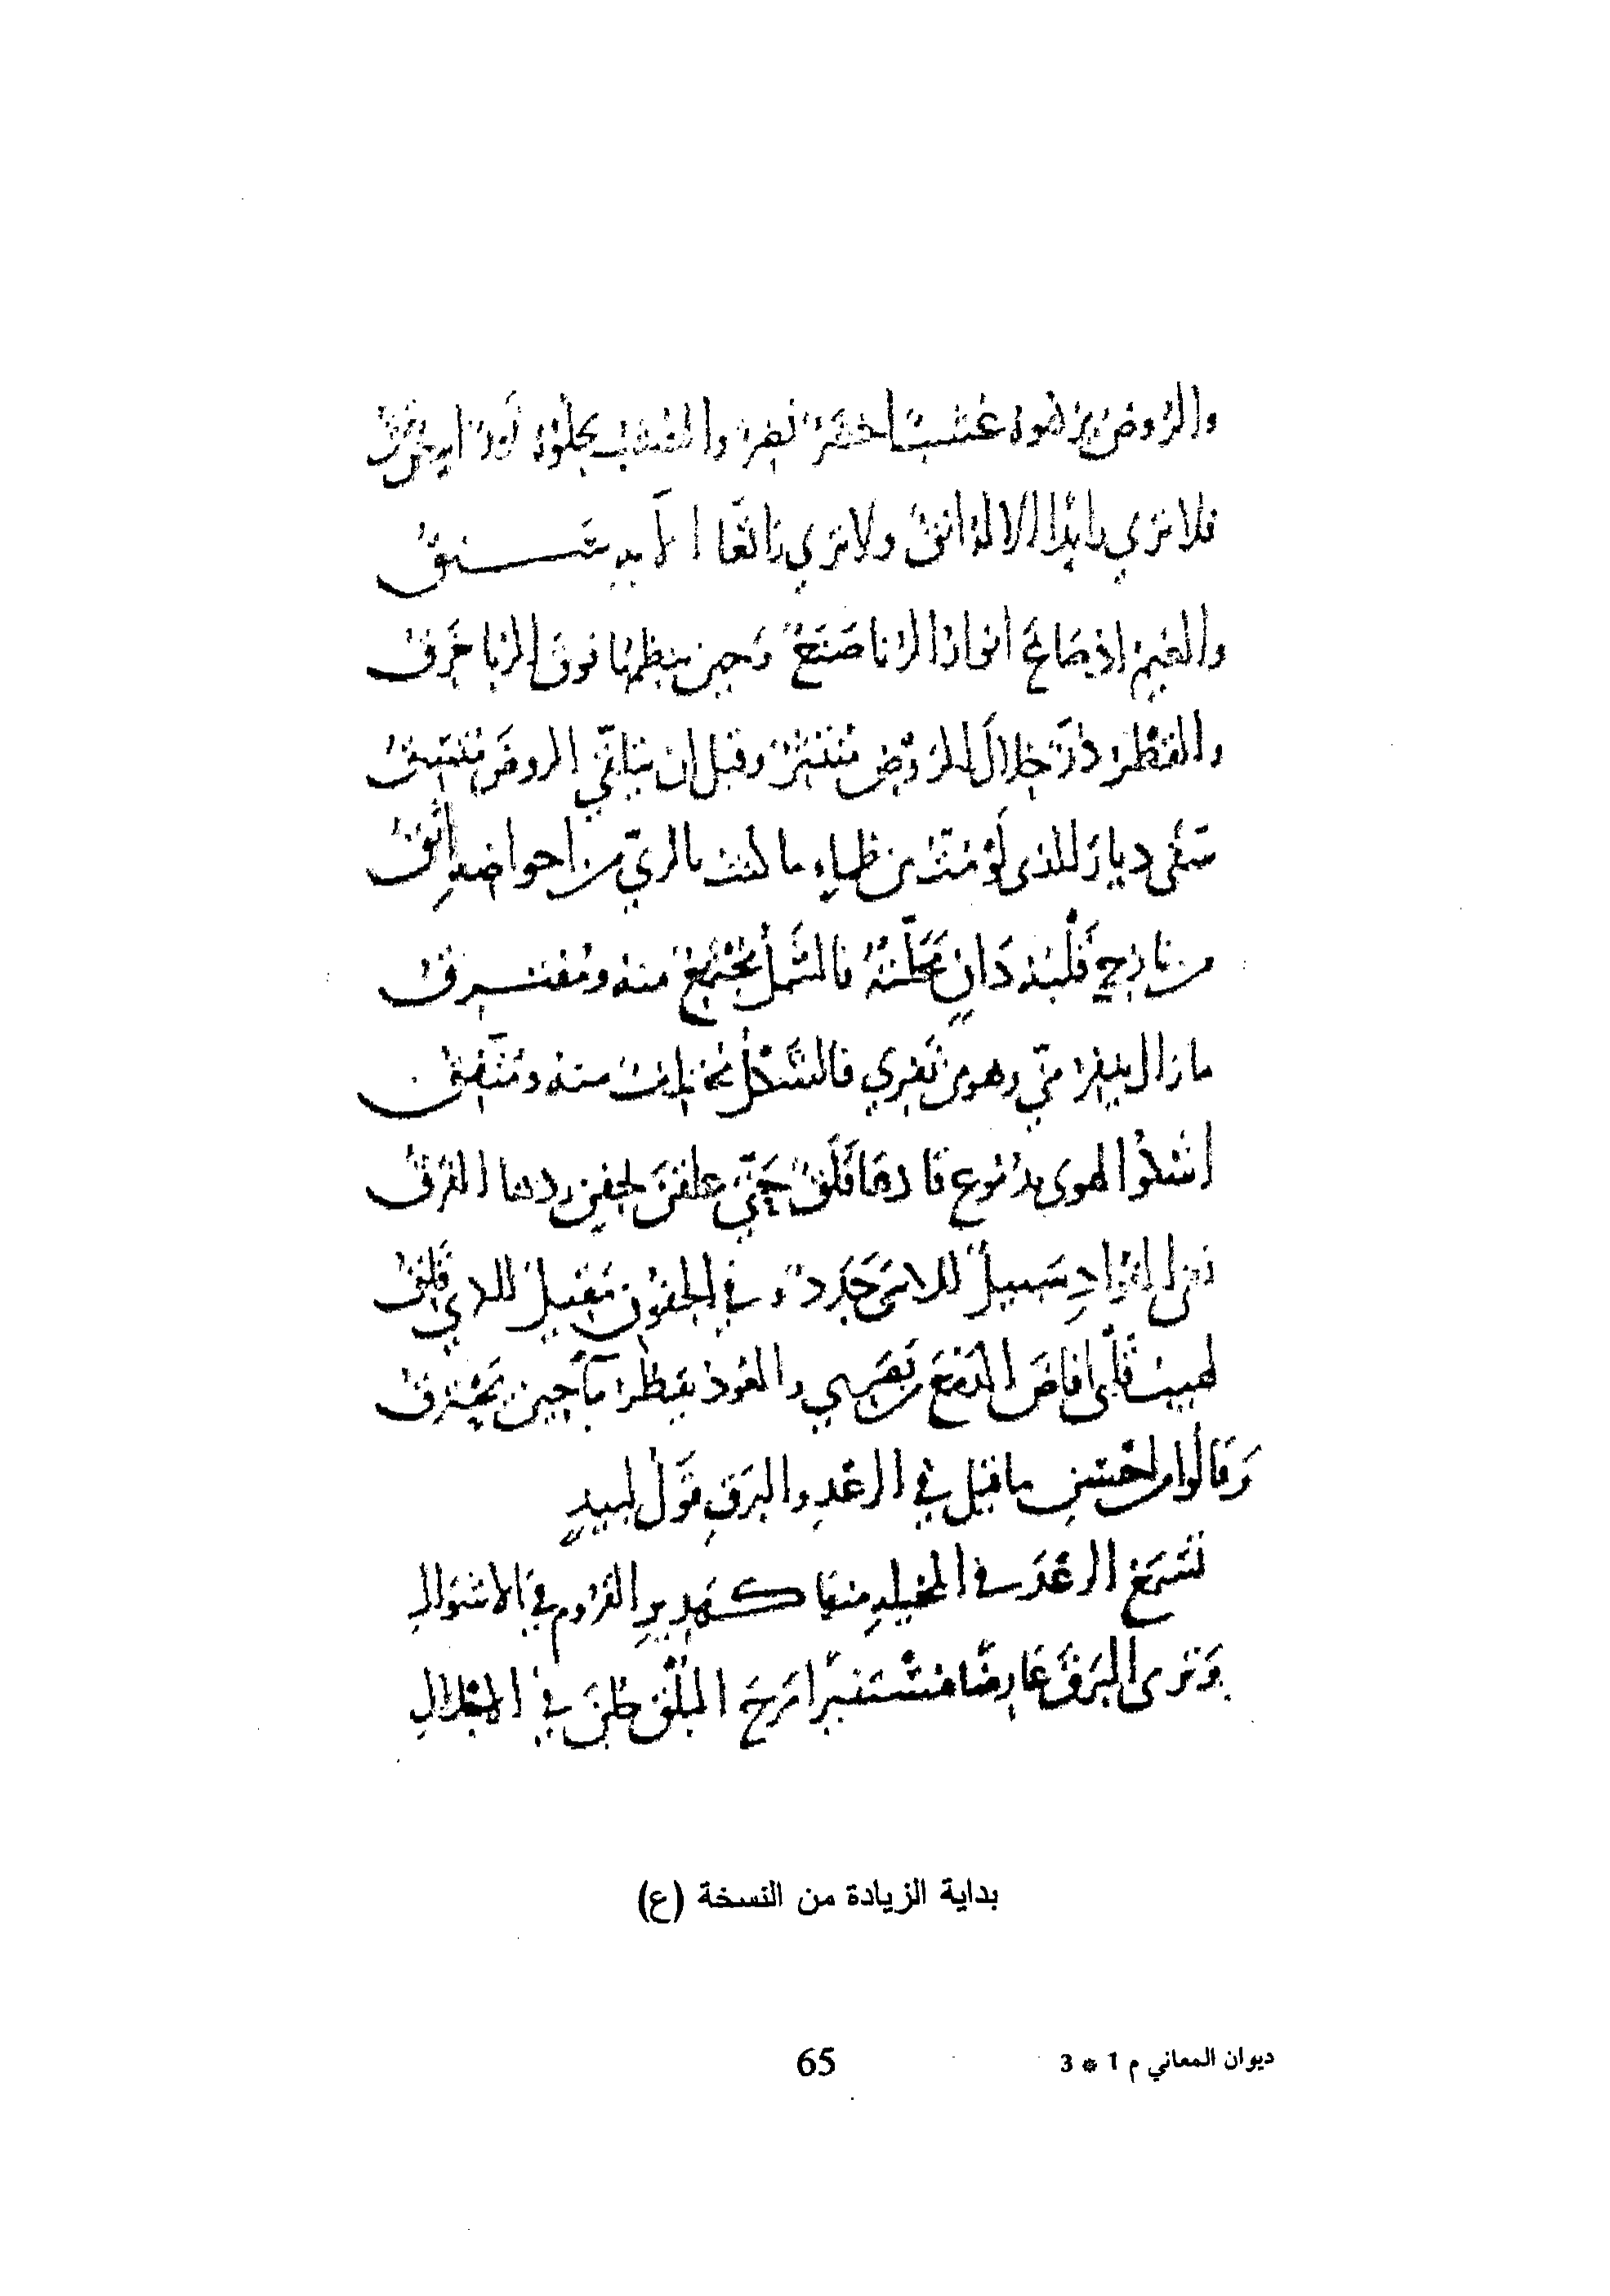 والروض يزهوه عشب اخضر نضر والعشب يجلوه نور
فلا ترى بابدا الا له انق ولا ترى رائعا الا به
والغيم اذ صاغ انوار الربا صنع وحين ينظمها فوق الربا خرق
والقطر در خلال الروض منتثر وقبل ان يتلقى الروض متسق
سقى ديار الذى لو مت من ظماء ما كنت بالري من احواضه اثق
من نازح قلبه دان محلته فالشمل مجتمع منه ومفترق
ما زال وهو من نفري فالشكل مختلف منه ومتفق
اشكوا الهوى بدموع قادها قلق حتى علقن بجفن ردها الغرق
ففى الفواد سبيل للاسى جدد وفي الجفون مقيل للاسي قلق
لهيب قلبى افاض الدمع من بصري والعود يقطر ماً حين يحترق
وقالوا من احسن ما قيل في الرعد والبرق قول لبيد
تسمع الرعد فى المخيلة منها كهدير القروم في الاشوال
وترى البرق عارضا مستنيرا مرح البلق جلن في الاجلال
بداية الزيادة من النسخة (ع)
ديوان المعاني م 1 * 3
65